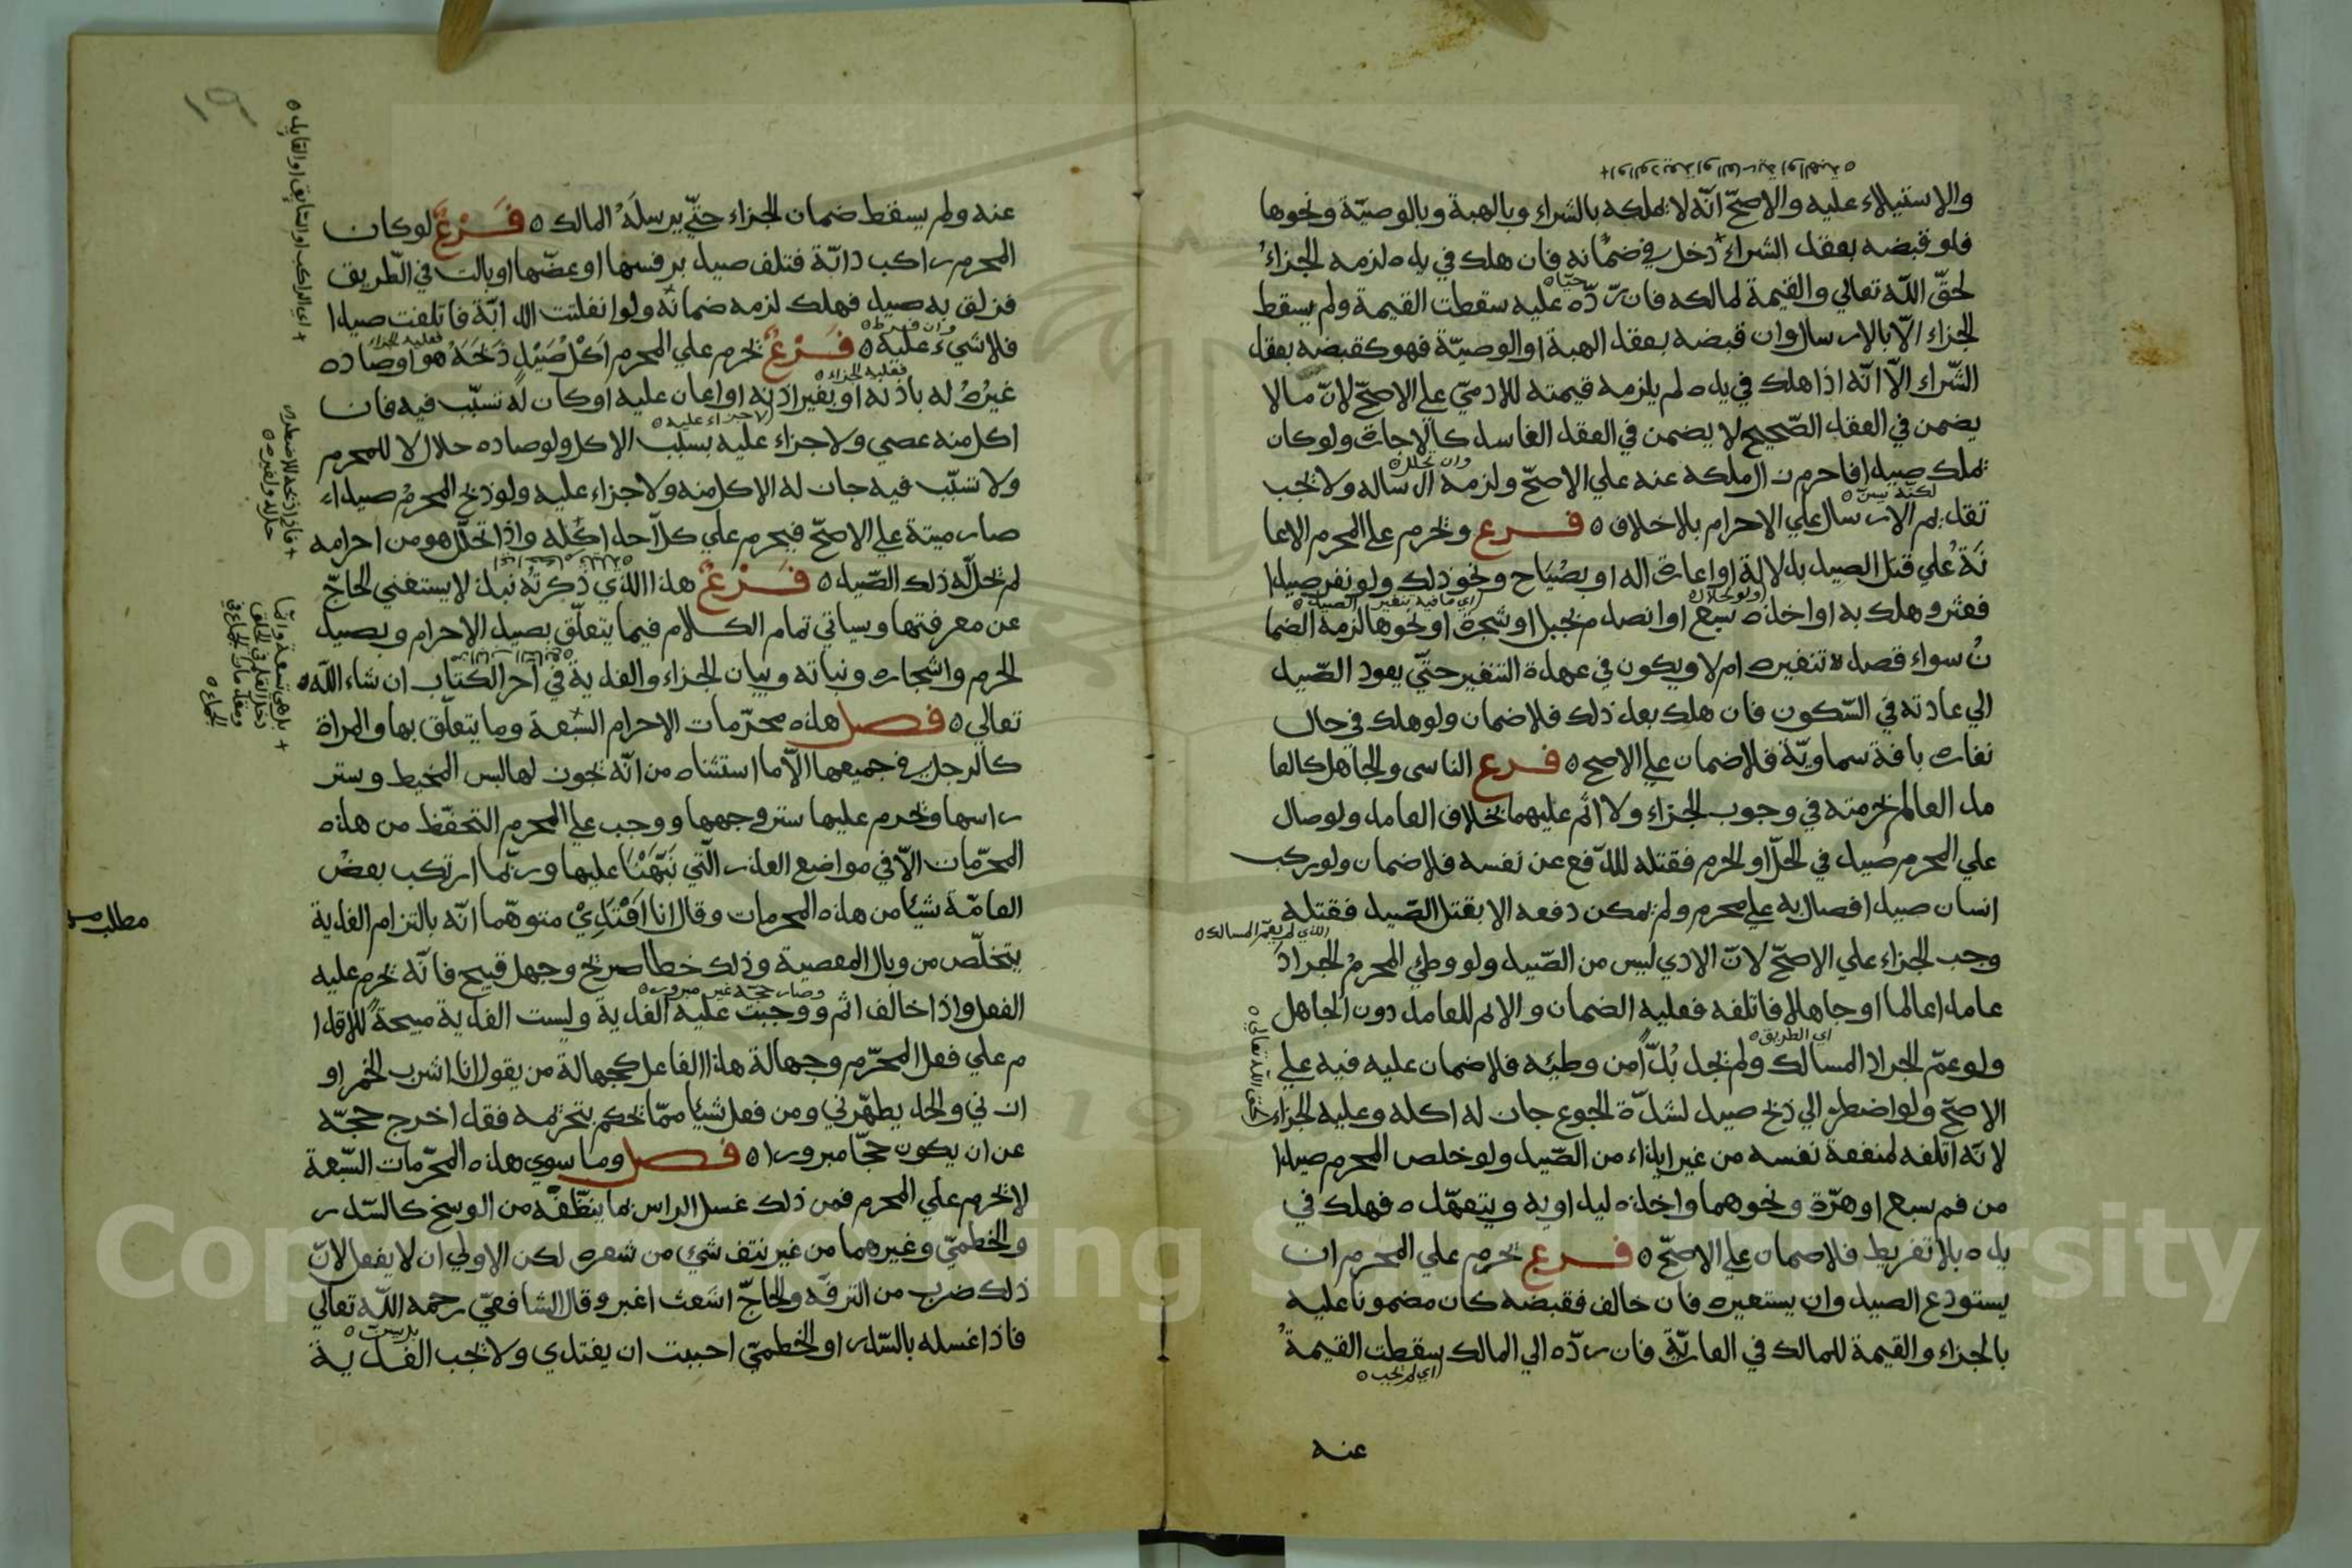 والاستيلاء عليه والاصحّ انّه لا يملكه بالشراء وبالهبة وبالوصيّة ونحوها
فلو قبضه بعقد الشراء دخل في ضمانه فان هلك في يده لزمه الجزاءُ
لحقّ اللّه تعالي والقيمة لمالكه فان ردّه عليه سقطت القيمة ولم يسقط
الجزاء الّا بالارسال وان قبضه بعقد الهبة او الوصيّة فهو كقبضه بعقد
الشّراء الّا انّه اذا هلك في يده لم يلزمه قيمته للادميّ علي الاصحّ لانّ مالا
يضمن في العقد الصّحيح لا يضمن في العقد الفاسد كالاجارة ولو كان
يملك صيدا فاحرم زال ملكه عنه علي الاصحّ ولزمه ارساله ولا يجب
تقديم الارسال علي الاحرام بلا خلاف ٥ فرع ويحرم علي المحرم الاعا
نَة علي قتل الصيد بدلالة او اعارة اله او بصياح ونحو ذلك ولو نفر صيدا
فعثر وهلك به او اخذه سبع او انصدم بجبل او شجرة او نحوها لزمه الضما
نُ سواء قصد تنفيره ام لا ويكون في عهدة التنفير حتّي يعود الصّيد
الي عادته في السّكون فان هلك بعد ذلك فلا ضمان ولو هلك في حال
نفاره بافة سماويّة فلا ضمان علي الاصح ٥ فرع الناسى والجاهل كالعا
مد العالم بحرمته في وجوب الجزاء ولا اثم عليهما بخلاف العامد ولو صال
علي المحرم صيد في الحلّ او الحرم فقتله للدّفع عن نفسه فلا ضمان ولو ركب
انسان صيدا فصال به علي محرم ولم يمكن دفعه الا بقتل الصّيد فقتله
وجب الجزاء علي الاصحّ لانّ الاذي ليس من الصّيد ولو وطئ المحرمُ الجرادَ
عامدا عالما او جاهلا فاتلفه فعليه الضمان والاثم للعامد دون الجاهل
اي الطريق ٥
ولو عمّ الجراد المسالك ولم يجد بُدّاً من وطيه فلا ضمان عليه فيه علي
الاصحّ ولو اضطر الي ذبح صيد لشدّة الجوع جاز له اكله وعليه الجزاء
لانّه اتلفه لمنفعة نفسه من غير ايذاء من الصّيد ولو خلص المحرم صيدا
من فم سبع او هرّة ونحوهما واخذه ليداويه ويتعهّده فهلك في
يده بلا تفريط فلا ضمان علي الاصحّ ٥ فرع يحرم علي المحرم ان
يستودع الصيد وان يستعيره فان خالف فقبضه كان مضمونا عليه
بالجزاء والقيمة للمالك في العاريّة فان ردّه الي المالك سقطت القيمةُ
اي لم تجب ٥
عنه
١٩
عنه ولم يسقط ضمان الجزاء حتّي يرسلَه المالك ٥ فَرْعٌ لو كان
المحرم راكب دابّة فتلف صيد برفسها او عضّها او بالت في الطّريق
فزلق به صيد فهلك لزمه ضمانه ولو انفلتت الدابّة فاتلفت صيدا
فلا شيء عليه ٥ فَرْعٌ يحرم علي المحرم اَكْل صَيْدٍ ذَبَحَهُ هو او صاده
فعليه الجزاء ٥
غيرُهُ له باذنه او بغير اذنه او اعان عليه او كان له تسبّب فيه فان
اكل منه عصي ولا جزاء عليه بسبب الاكل ولو صاده حلال لا للمحرم
ولا تسبّب فيه جاز له الاكل منه ولا جزاء عليه ولو ذبح المحرمُ صيداً
صار ميتة علي الاصحّ فيحرم علي كلّ احد اكله واذا تحلّل هو من احرامه
لم يحلّ له ذلك الصّيد ٥ فَرْعٌ هذا الذي ذكرته نبذ لا يستغني الحاجّ
عن معرفتها وسياتي تمام الكلام فيما يتعلّق بصيد الاحرام وبصيد
الحرم واشجاره ونباته وبيان الجزاء والفدية في آخر الكتاب ان شاء اللّه
تعالي ٥ فصل هذه محرّمات الاحرام السّبعة وما يتعلّق بها والمراة
كالرجل في جميعها الّا ما استثناه من انّه يجوز لها لبس المخيط وستر
راسها ويحرم عليها ستر وجهها ووجب علي المحرم التحفّظ من هذه
المحرّمات الّا في مواضع العذر الّتي نَبَّهْنَا عليها وربّما ارتكب بعضُ
العامّة شيئا من هذه المحرمات وقال انا اَفْتَدِيْ متوهّما انّه بالتزام الفدية
يتخلّص من وبال المعصية وذلك خطا صريح وجهل قبيح فانّه يحرم عليه
وصار حجّه غير مبرور ٥
الفعل واذا خالف اثم ووجبت عليه الفدية وليست الفدية مبيحة للاقدا
م علي فعل المحرّم وجهالة هذا الفاعل كجهالة من يقول انا اشرب الخمر او
ازني والحد يطهّرني ومن فعل شيئا ممّا يحكم بتحريمه فقد اخرج حجّه
عن ان يكون حجّا مبرورا ٥ فصل وما سوي هذه المحرّمات السّبعة
لا يحرم علي المحرم فمن ذلك غسل الراس بما ينظّفه من الوسخ كالسّدر
والخطميّ وغيرهما من غير نتف شيء من شعره لكن الاولي ان لا يفعل لانّ
ذلك ضرب من الترفّه والحاجّ اشعث اغبر وقال الشافعيّ رحمه اللّه تعالي
فاذا غسله بالسّدر او الخطميّ احببت ان يفتدي ولا يجب الفدية
Copyright © King Saud University